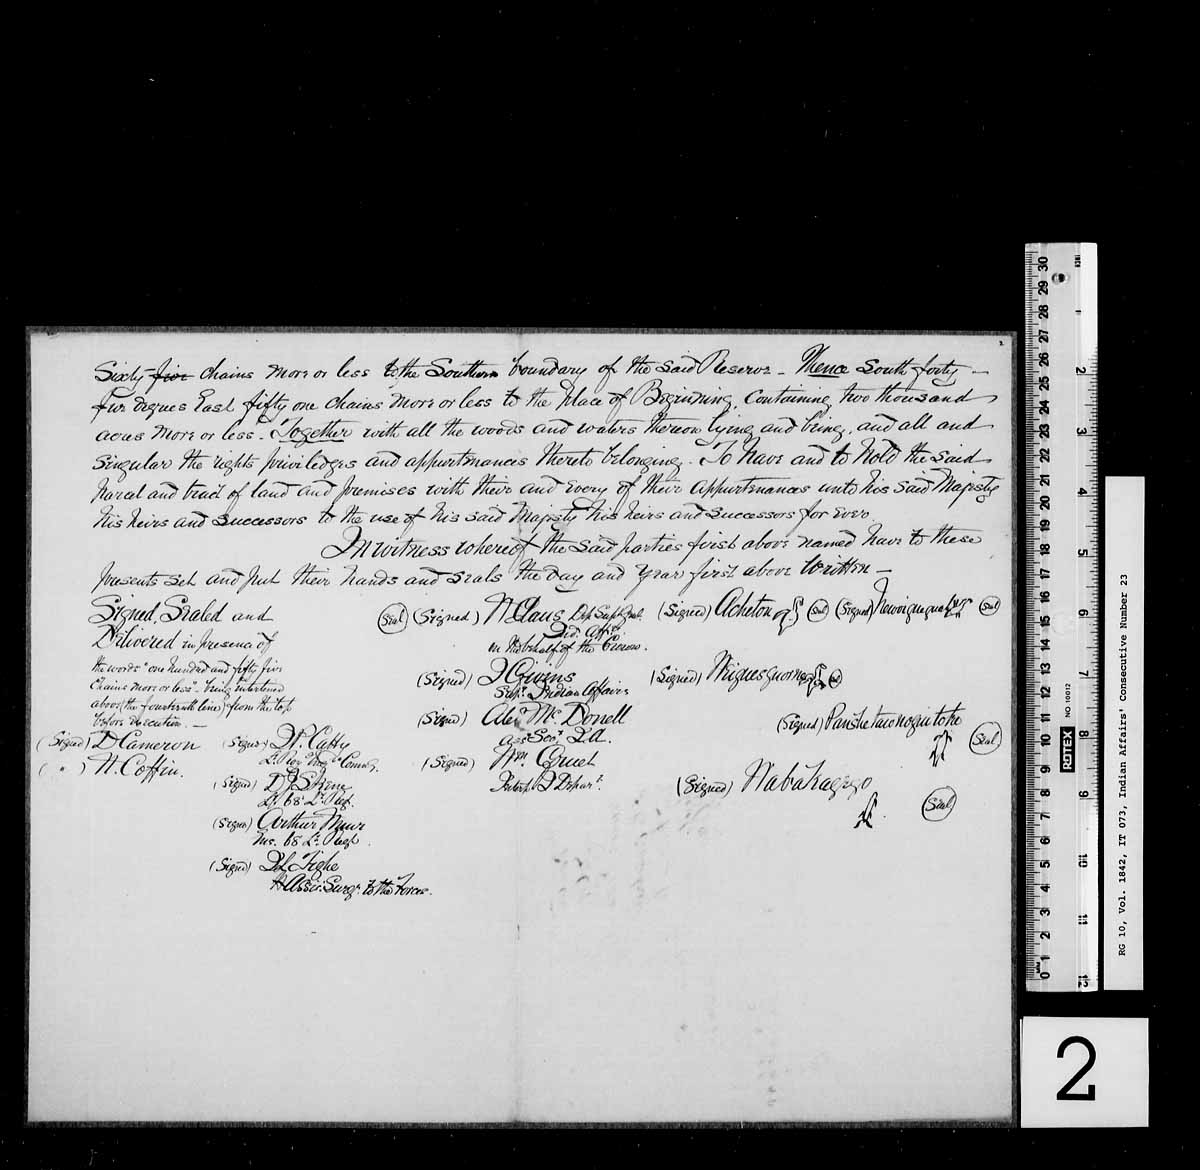 2
Sixty five chains more or less to the Southern boundary of the said Reserve - Thence South forty
five degrees East fifty one chains more or less to the Place of Beginning, Containing two thousand
acres more or less. Together with all the woods and waters thereon lying and being, and all and
Singular the rights priviledges and appurtenances thereto belonging. To have and to hold the said
Parcel and tract of land and premises with their and every of their appurtenances unto his said Majesty
his heirs and successors to the use of his said Majesty his heirs and successors for ever
In witness whereof the said parties first above named have to these
presents set and put their hands and seals the day and year first above written -
Signed, Sealed and
Delivered in presence of
the words "one hundred and fifty five
chains more or less" being interlined
above (the fourteenth line) from the top
before execution. -
(Signed) D Cameron
( " ) N. Coffin.
(Signed)
Lt
(Signed)
Lt 68 Lt Regt.
(Signed) Arthur Muir
68 Lt Regt.
(Signed) Tighe
Assis: Surgn to the Forces.
Seal (Signed) W Claus Dep Supt Genl
Ind. Affrs
on the behalf of the Crown.
(Signed) J Givins
Supt Indian Affairs
(Signed) Alexr McDonell
Asst Secy I.A.
(Signed) Wm Gruet
Interpr I Depart.
(Signed) Acheton Seal
(Signed) Seal
(Signed) Seal
(Signed) Seal
(Signed) Nabakagego Seal
RG 10, Vol. 1842, IT 073, Indian Affairs' Consecutive Number 23
ROTEX NO 10012
0 1 2 3 4 5 6 7 8 9 10 11 12 13 14 15 16 17 18 19 20 21 22 23 24 25 26 27 28 29 30
1 2 3 4 5 6 7 8 9 10 11 12
2